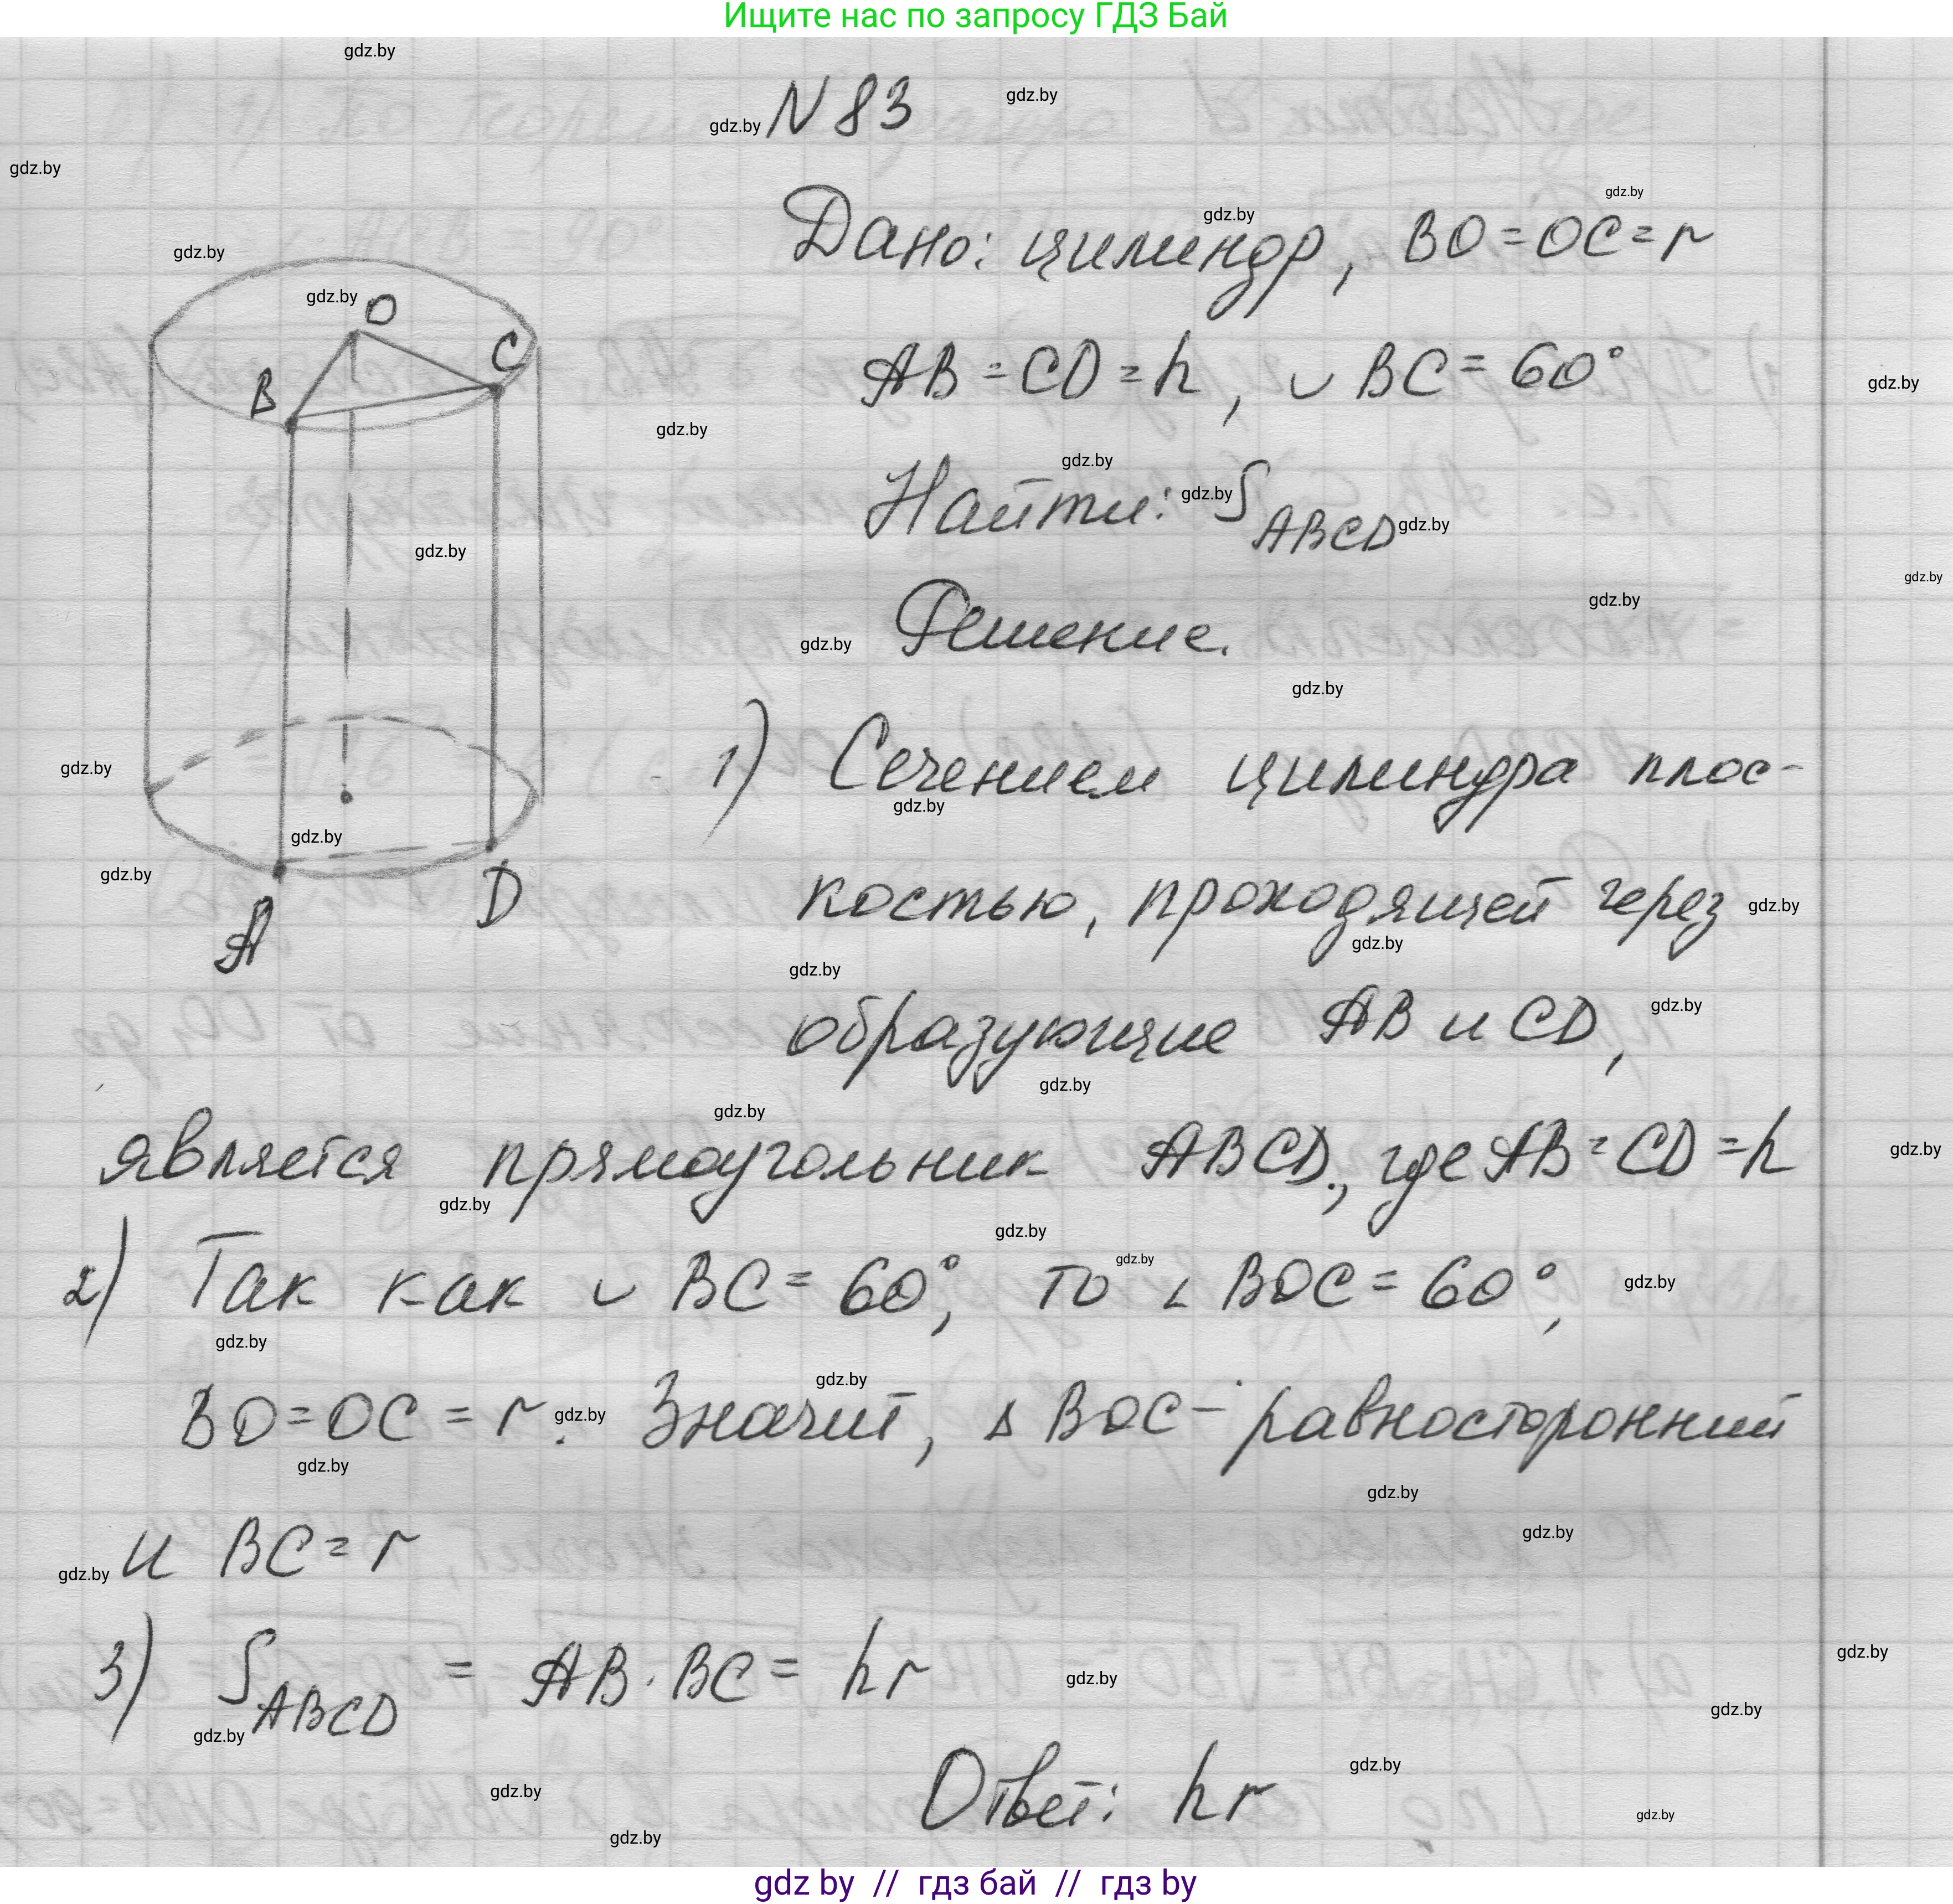 Ищите нас по запросу ГДЗ Бай
N 83
Дано: цилиндр, BO = OC = r
AB = CD = h, ◡ BC = 60°
Найти: S ABCD
Решение.
1) Сечением цилиндра плос-
костью, проходящей через
образующие AB и CD,
является прямоугольник ABCD., где AB = CD = h
2) Так как ◡ BC = 60°, то ∠ BOC = 60°,
BO = OC = r. Значит, Δ BOC – равносторонний
и BC = r
3) S ABCD = AB · BC = hr
Ответ: hr
O
C
B
A
D
gdz.by
gdz by // гдз бай // гдз by